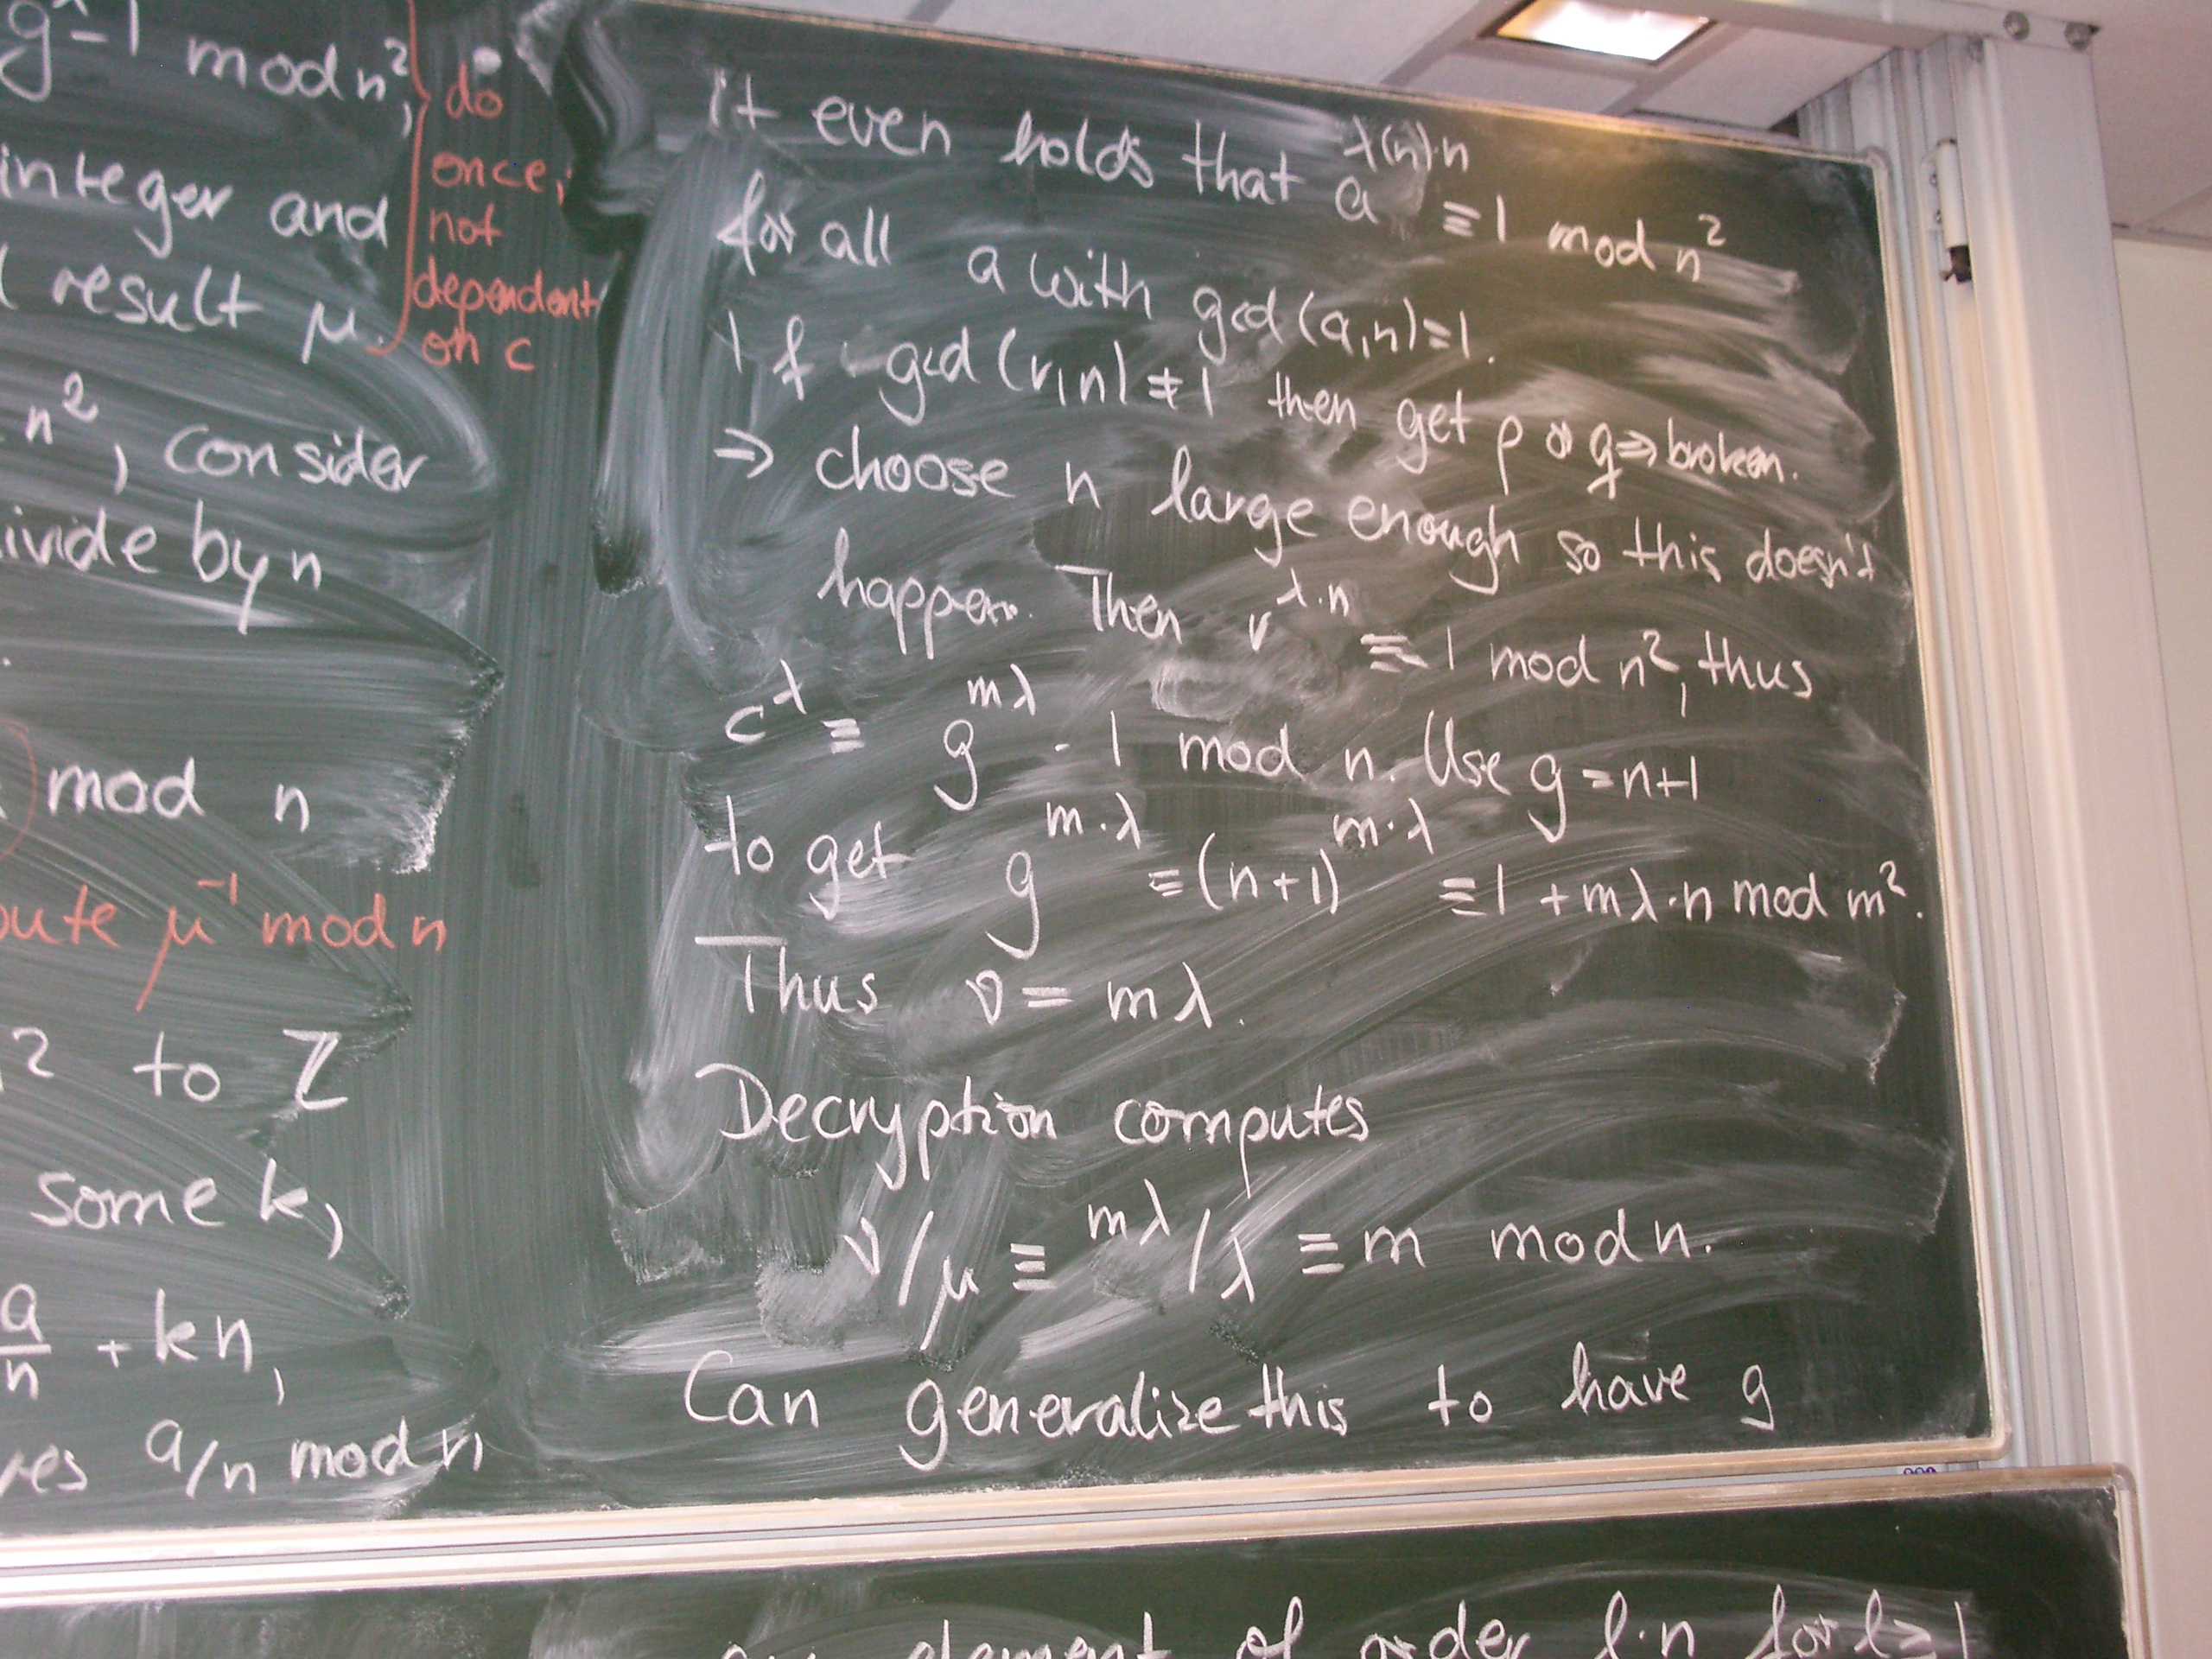 g^λ-1 mod n²,
integer and
result μ.
n², consider
divide by n
mod n
μ⁻¹ mod n
² to Z
some k,
a/n + kn,
a/n mod n
do
once,
not
dependent
on c
it even holds that a^(λ(n)·n) ≡ 1 mod n²
for all a with gcd(a,n)=1.
If gcd(r,n)≠1 then get p or q ⇒ broken.
⇒ choose n large enough so this doesn't
happen. Then r^(λ·n) ≡ 1 mod n², thus
c^λ ≡ g^(mλ) · 1 mod n. Use g=n+1
to get g^(m·λ) ≡ (n+1)^(m·λ) ≡ 1 + mλ·n mod m².
Thus ν = mλ.
Decryption computes
ν/μ ≡ mλ/λ ≡ m mod n.
Can generalize this to have g
element of order l·n for l≥1